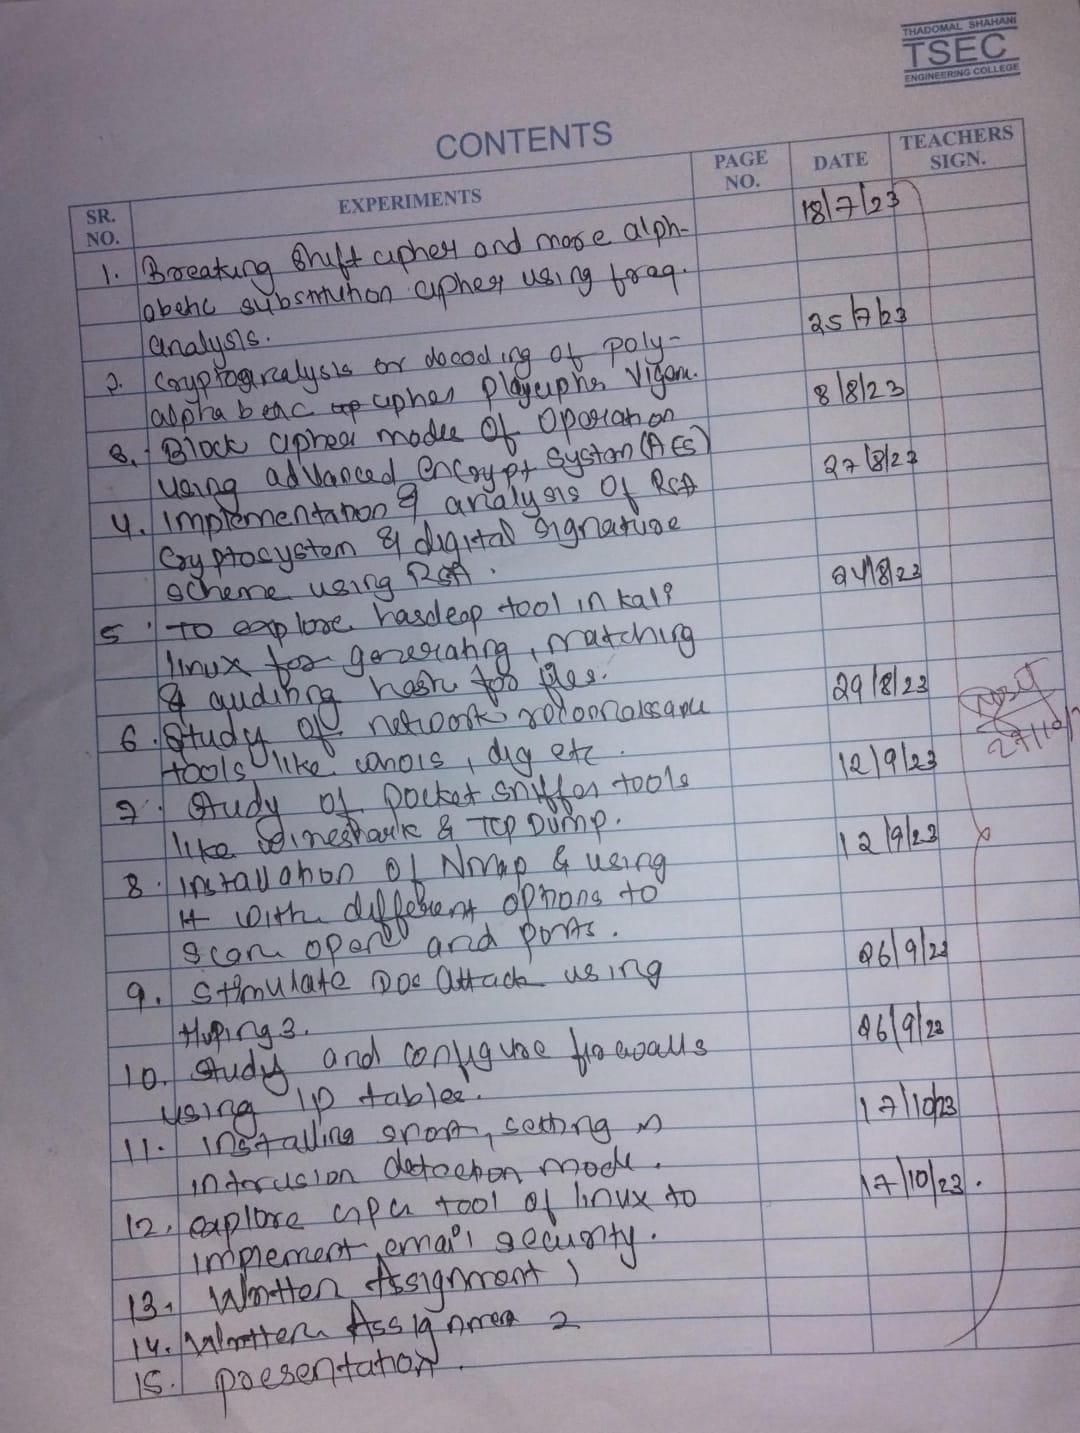 THADOMAL SHAHANI
TSEC
ENGINEERING COLLEGE
CONTENTS
SR. NO. EXPERIMENTS PAGE NO. DATE TEACHERS SIGN.
1. Breaking Shift cipher and more alph- 18/7/23
abetic substitution cipher using freq.
analysis.
2. Cryptogralysis or decoding of poly- 25/7/23
alphabetic cipher playcipher Vigen.
3. Block cipher modes of Operation 8/8/23
using advanced encrypt System (AES)
4. Implementation & analysis of RSA 27/8/23
Cryptocystem & digital signature
scheme using RSA.
5. To explore hasdeep tool in kali 24/8/23
linux for generating, matching
& auditing hash for files.
6. Study of network reconnaissance 29/8/23
tools like whois, dig etc.
7. Study of packet sniffer tools 12/9/23
like Wireshark & TCP Dump.
8. Installation of Nmap & using 12/9/23
it with different options to
scan open and ports.
9. Stimulate DOS attack using 26/9/23
Hping3.
10. Study and configure firewalls 26/9/23
using IP tables.
11. Installing snort, setting in 17/10/23
intrusion detection mode.
12. explore GPG tool of linux to 17/10/23.
implement email security.
13. Written Assignment 1
14. Written Assignment 2
15. presentation.